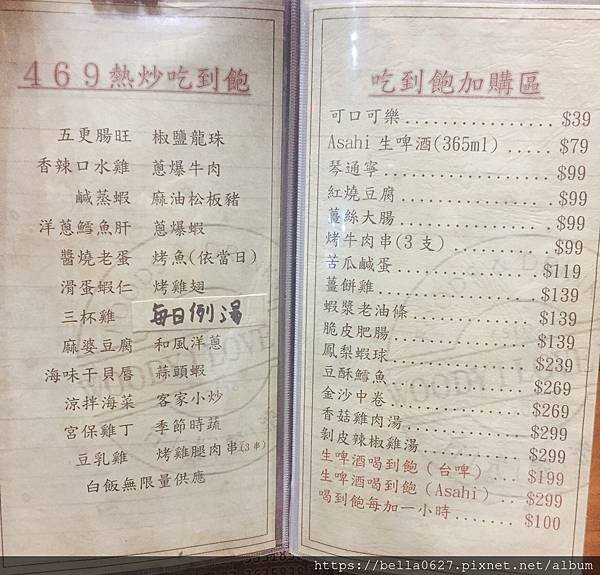 469熱炒吃到飽
五更腸旺 椒鹽龍珠
香辣口水雞 蔥爆牛肉
鹹蒸蝦 麻油松板豬
洋蔥鱈魚肝 蔥爆蝦
醬燒老蛋 烤魚(依當日)
滑蛋蝦仁 烤雞翅
三杯雞 每日例湯
麻婆豆腐 和風洋蔥
海味干貝唇 蒜頭蝦
涼拌海菜 客家小炒
宮保雞丁 季節時蔬
豆乳雞 烤雞腿肉串(3串)
白飯無限量供應
吃到飽加購區
可口可樂.................$39
Asahi生啤酒(365ml) .....$79
琴通寧...................$99
紅燒豆腐.................$99
薑絲大腸.................$99
烤牛肉串(3支) ...........$99
苦瓜鹹蛋.................$119
薑餅雞...................$139
蝦漿老油條...............$139
脆皮肥腸.................$139
鳳梨蝦球.................$239
豆酥鱈魚.................$269
金沙中卷.................$269
香菇雞肉湯...............$299
剝皮辣椒雞湯.............$299
生啤酒喝到飽(台啤) .....$199
生啤酒喝到飽(Asahi) ....$299
喝到飽每加一小時........$100
https://bella0627.pixnet.net/album